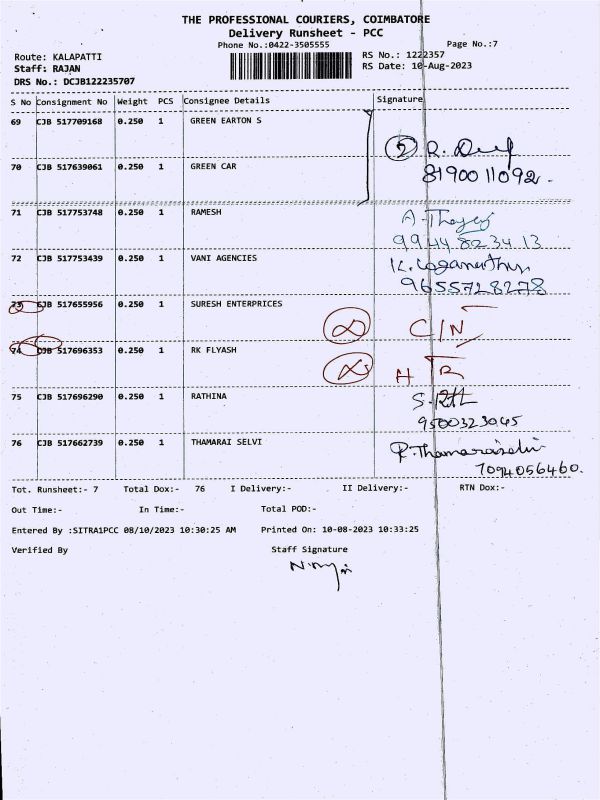 THE PROFESSIONAL COURIERS, COIMBATORE
Delivery Runsheet - PCC
Phone No.:0422-3505555 Page No.:7
Route: KALAPATTI RS No.: 1222357
Staff: RAJAN RS Date: 10-Aug-2023
DRS No.: DCJB122235707
S No Consignment No Weight PCS Consignee Details Signature
69 CJB 517709168 0.250 1 GREEN EARTON S
2 R.
70 CJB 517639061 0.250 1 GREEN CAR 8190011092.
71 CJB 517753748 0.250 1 RAMESH A.
9944823413
72 CJB 517753439 0.250 1 VANI AGENCIES K.
9655728278
73 CJB 517655956 0.250 1 SURESH ENTERPRICES
C/N
74 CJB 517696353 0.250 1 RK FLYASH
H TR
75 CJB 517696290 0.250 1 RATHINA S.
9500323045
76 CJB 517662739 0.250 1 THAMARAI SELVI P. Thamaraiselvi
7094056460.
Tot. Runsheet:- 7 Total Dox:- 76 I Delivery:- II Delivery:- RTN Dox:-
Out Time:- In Time:- Total POD:-
Entered By :SITRA1PCC 08/10/2023 10:30:25 AM Printed On: 10-08-2023 10:33:25
Verified By Staff Signature